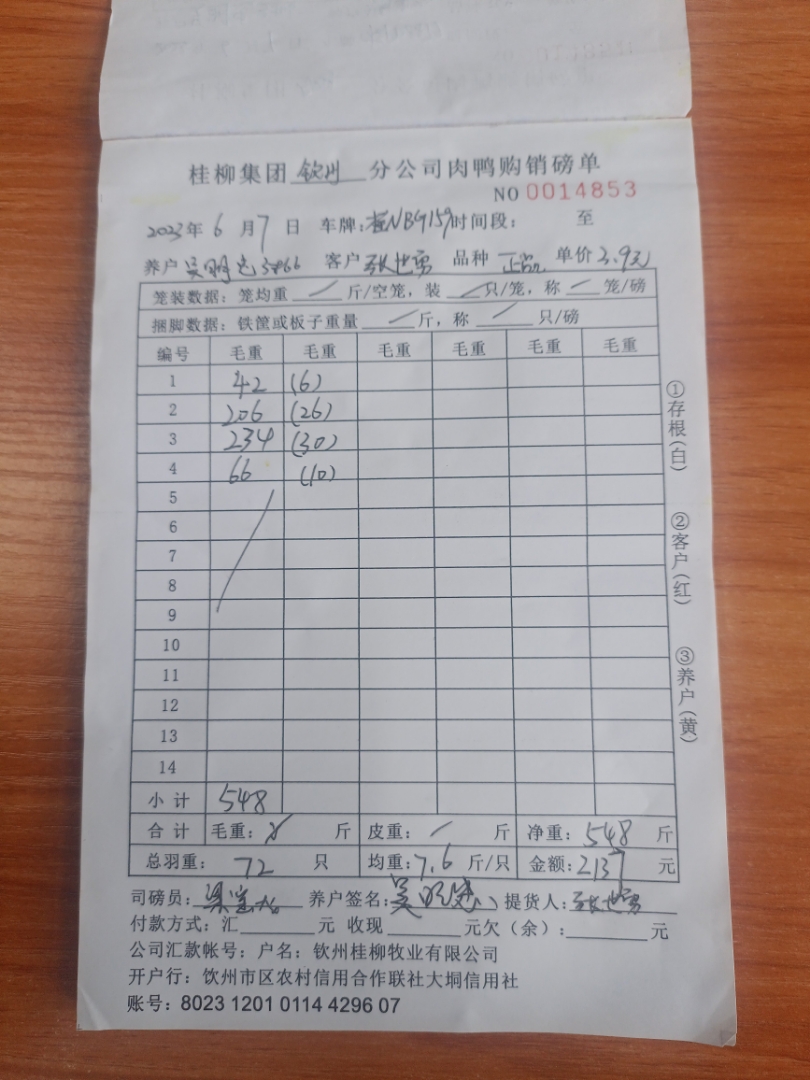 桂柳集团 钦州 分公司肉鸭购销磅单
NO 0014853
2023年 6 月 7 日 车牌:桂NBG159 时间段: 至
养户 吴明 客户 张世勇 品种 正品 单价 3.9元
笼装数据:笼均重 / 斤/空笼,装 / 只/笼,称 / 笼/磅
捆脚数据:铁筐或板子重量 / 斤,称 / 只/磅
编号 毛重 毛重 毛重 毛重 毛重 毛重
1 42 (6)
2 206 (26)
3 234 (30)
4 66 (10)
5
6
7
8
9
10
11
12
13
14
小计 548
合计 毛重: 斤 皮重: / 斤 净重:548 斤
总羽重: 72 只 均重:7.6 斤/只 金额:2137 元
司磅员: 养户签名:吴明 提货人:张世勇
付款方式:汇 元 收现 元欠(余): 元
公司汇款帐号:户名:钦州桂柳牧业有限公司
开户行:饮州市区农村信用合作联社大垌信用社
账号:8023 1201 0114 4296 07
①存根(白)
②客户(红)
③养户(黄)